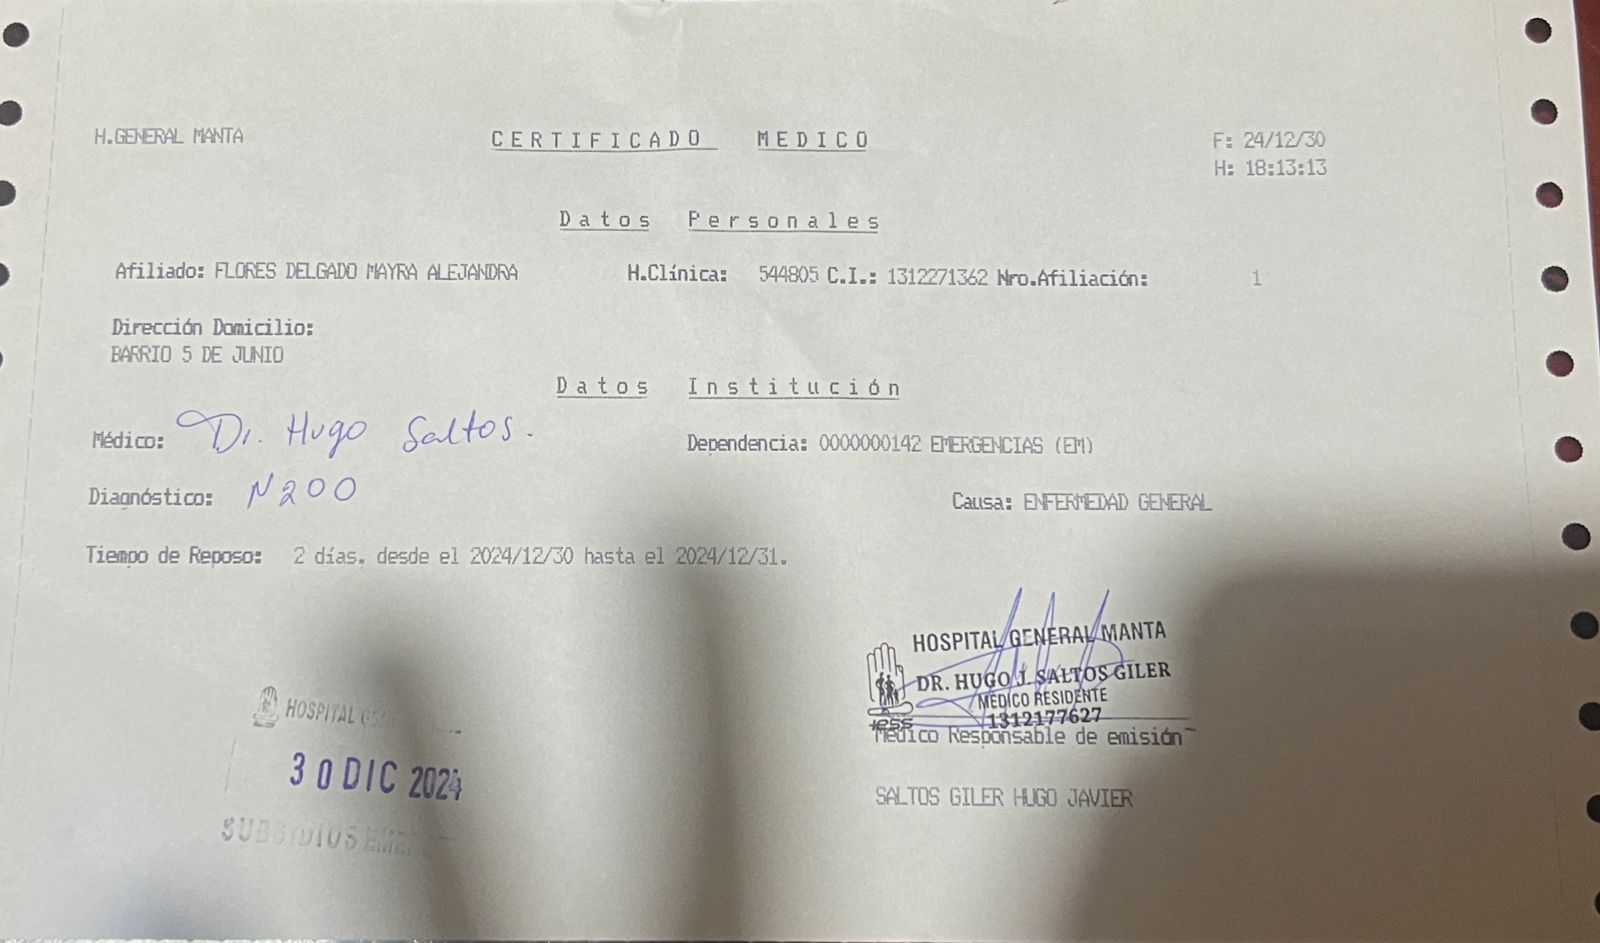 H.GENERAL MANTA
CERTIFICADO MEDICO
F: 24/12/30
H: 18:13:13
Datos Personales
Afiliado: FLORES DELGADO MAYRA ALEJANDRA H.Clínica: 544805 C.I.: 1312271362 Nro.Afiliación: 1
Dirección Domicilio:
BARRIO 5 DE JUNIO
Datos Institución
Médico: Dr. Hugo Saltos. Dependencia: 0000000142 EMERGENCIAS (EM)
Diagnóstico: N200 Causa: ENFERMEDAD GENERAL
Tiempo de Reposo: 2 días. desde el 2024/12/30 hasta el 2024/12/31.
HOSPITAL GENERAL MANTA
DR. HUGO J. SALTOS GILER
MEDICO RESIDENTE
1312177627
iess
Médico Responsable de emisión
SALTOS GILER HUGO JAVIER
HOSPITAL
30 DIC 2024
SUBSIDIOS